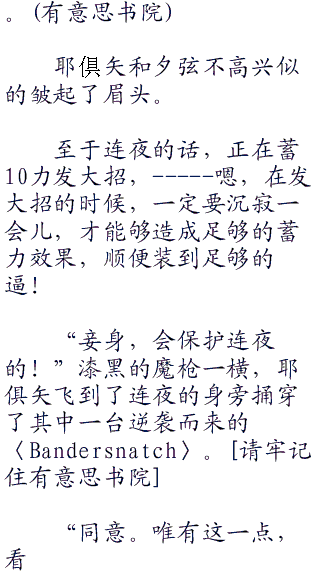 。(有意思书院)
耶俱矢和夕弦不高兴似
的皱起了眉头。
至于连夜的话，正在蓄
10力发大招，-----嗯，在发
大招的时候，一定要沉寂一
会儿，才能够造成足够的蓄
力效果，顺便装到足够的
逼！
“妾身，会保护连夜
的！”漆黑的魔枪一横，耶
俱矢飞到了连夜的身旁捅穿
了其中一台逆袭而来的
〈Bandersnatch〉。[请牢记
住有意思书院]
“同意。唯有这一点，
看